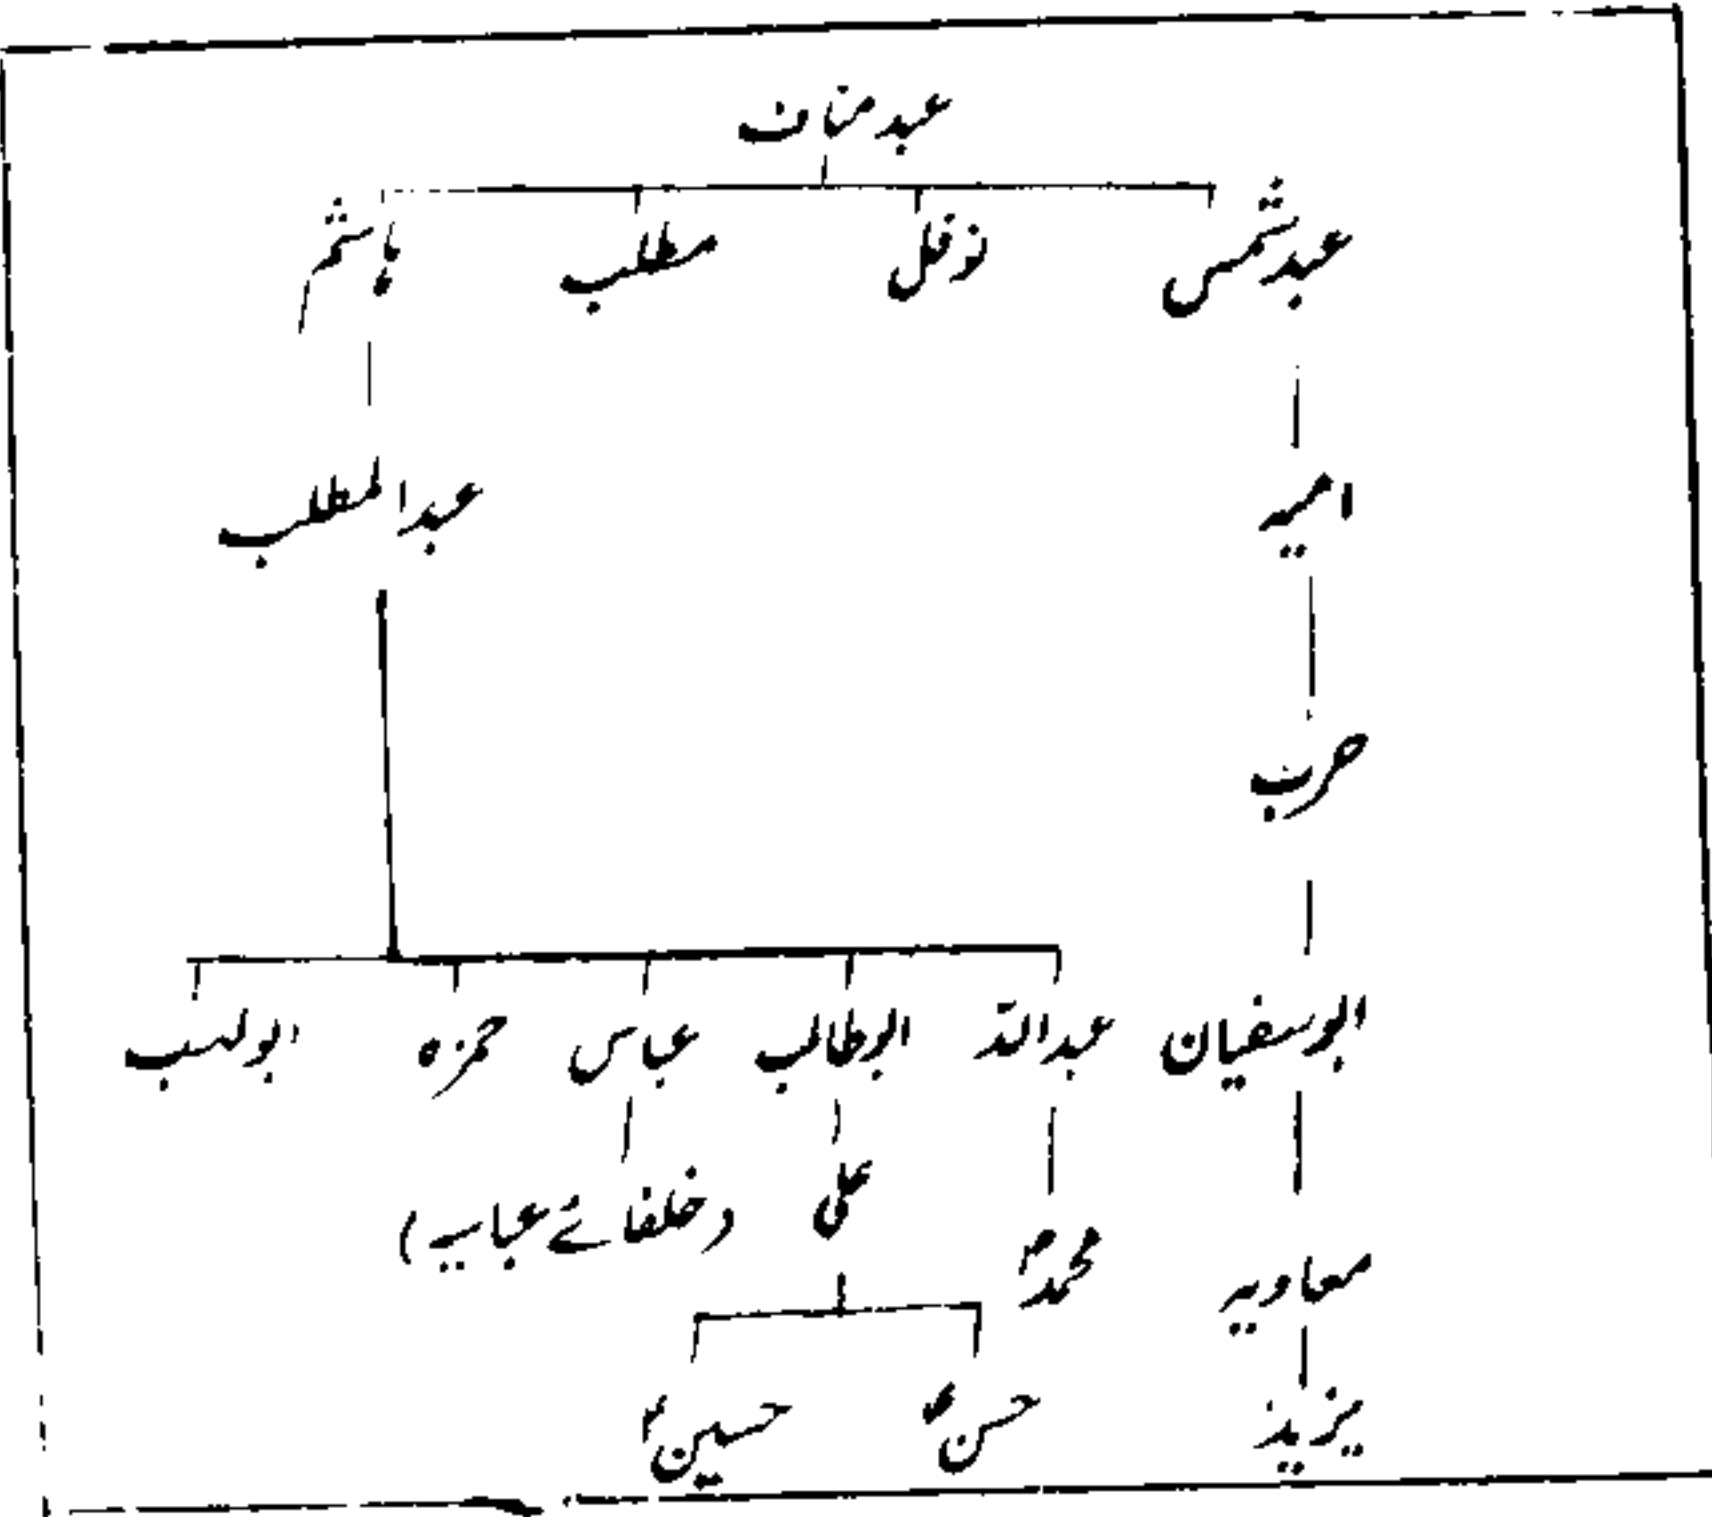 عبد مناف
عبد شمس نوفل مطلب ہاشم
امیہ عبدالمطلب
حرب
ابوسفیان عبداللہ ابوطالب عباس حمزہ ابولہب
معاویہ محمدؐ علی (خلفائے عباسیہ)
یزید حسنؑ حسینؑ